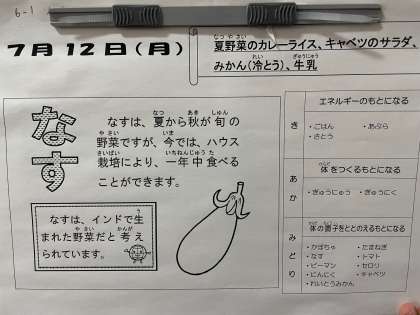 6-1
7月12日(月)
夏野菜のカレーライス、キャベツのサラダ、
みかん(冷とう)、牛乳
なす
なすは、夏から秋が旬の
野菜ですが、今では、ハウス
栽培により、一年中食べる
ことができます。
なすは、インドで生
まれた野菜だと考え
られています。
エネルギーのもとになる
き
・ごはん ・あぶら
・さとう
体をつくるもとになる
あか
・ぎゅうにゅう ・ぎゅうにく
体の調子をととのえるもとになる
みどり
・かぼちゃ ・たまねぎ
・なす ・トマト
・ピーマン ・セロリ
・にんにく ・キャベツ
・れいとうみかん